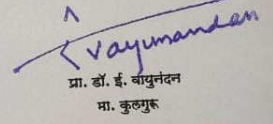 Vayunandan
प्रा. डॉ. ई. वायुनंदन
मा. कुलगुरू